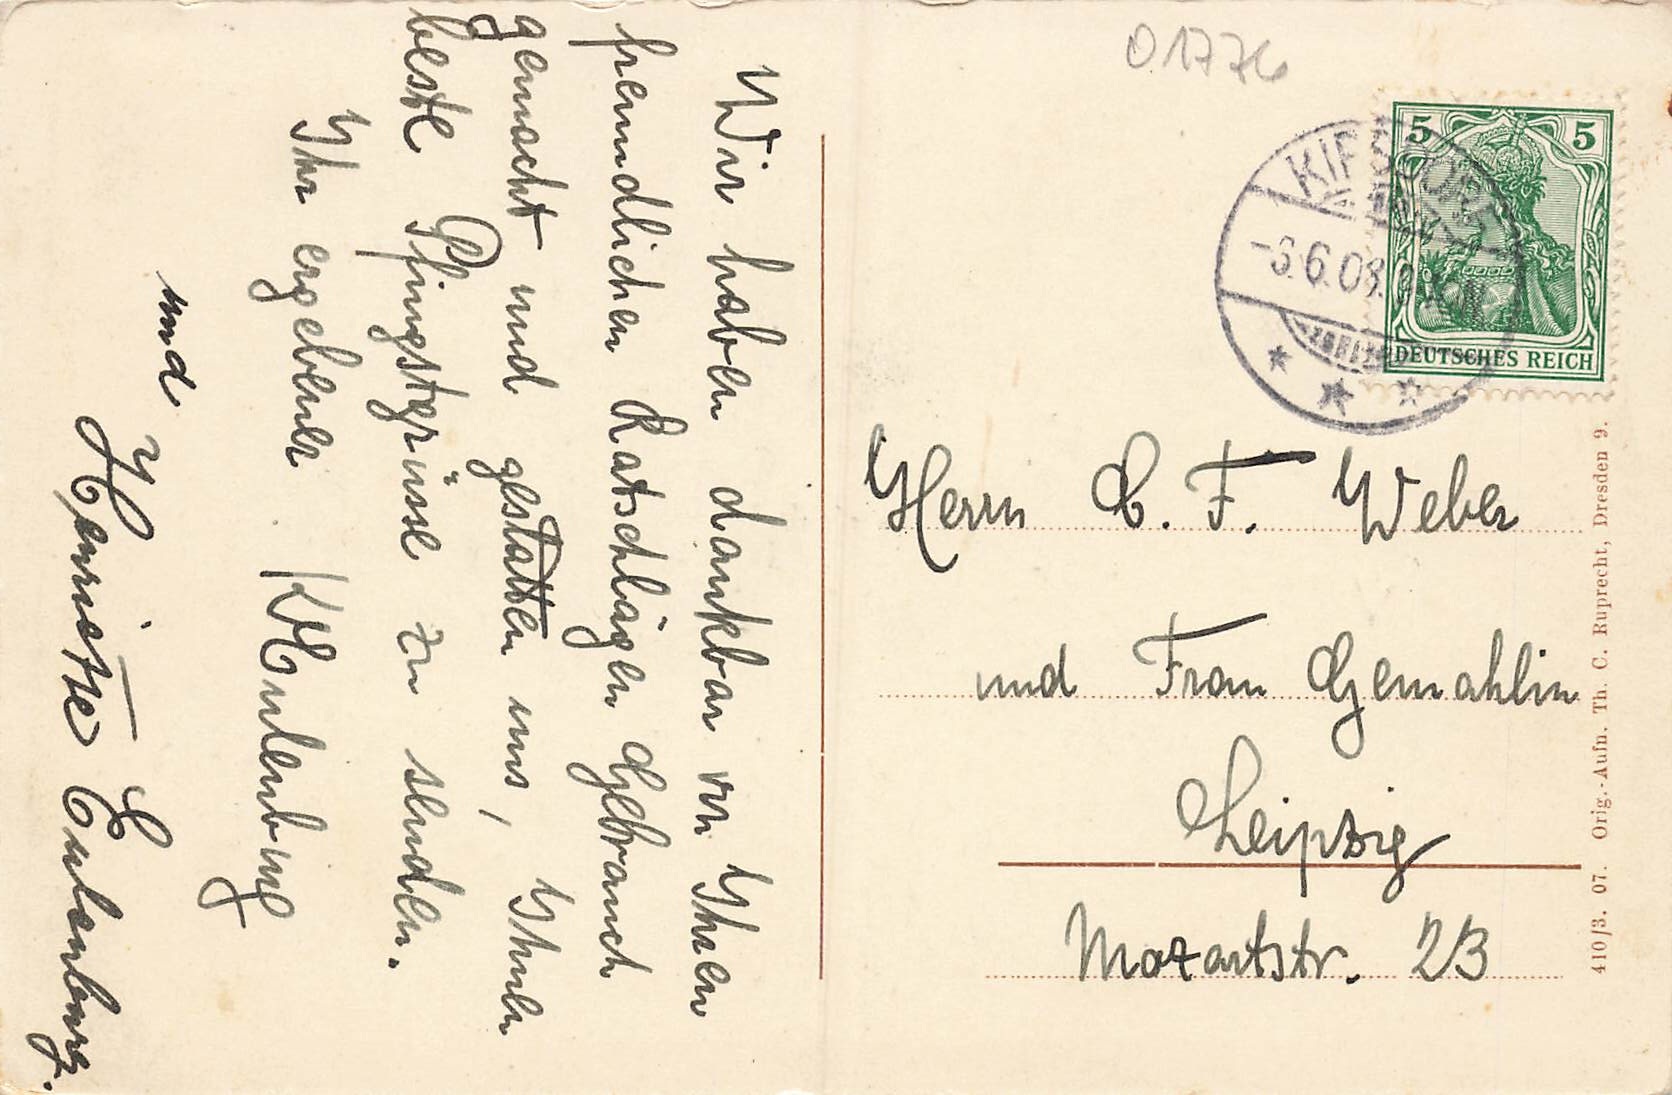 Wir haben dankbar von Ihren
freundlichen Ratschlägen Gebrauch
gemacht und gestatten uns, Ihnen
beste Pfingstgrüsse zu senden.
Ihr ergebener Eulenburg
und
Henriette Eulenburg.
01776
5 5
DEUTSCHES REICH
6.08.
Herrn C. F. Weber
und Frau Gemahlin
Leipzig
Mozartstr. 23
410/3. 07. Orig.-Aufn. Th. C. Ruprecht, Dresden 9.